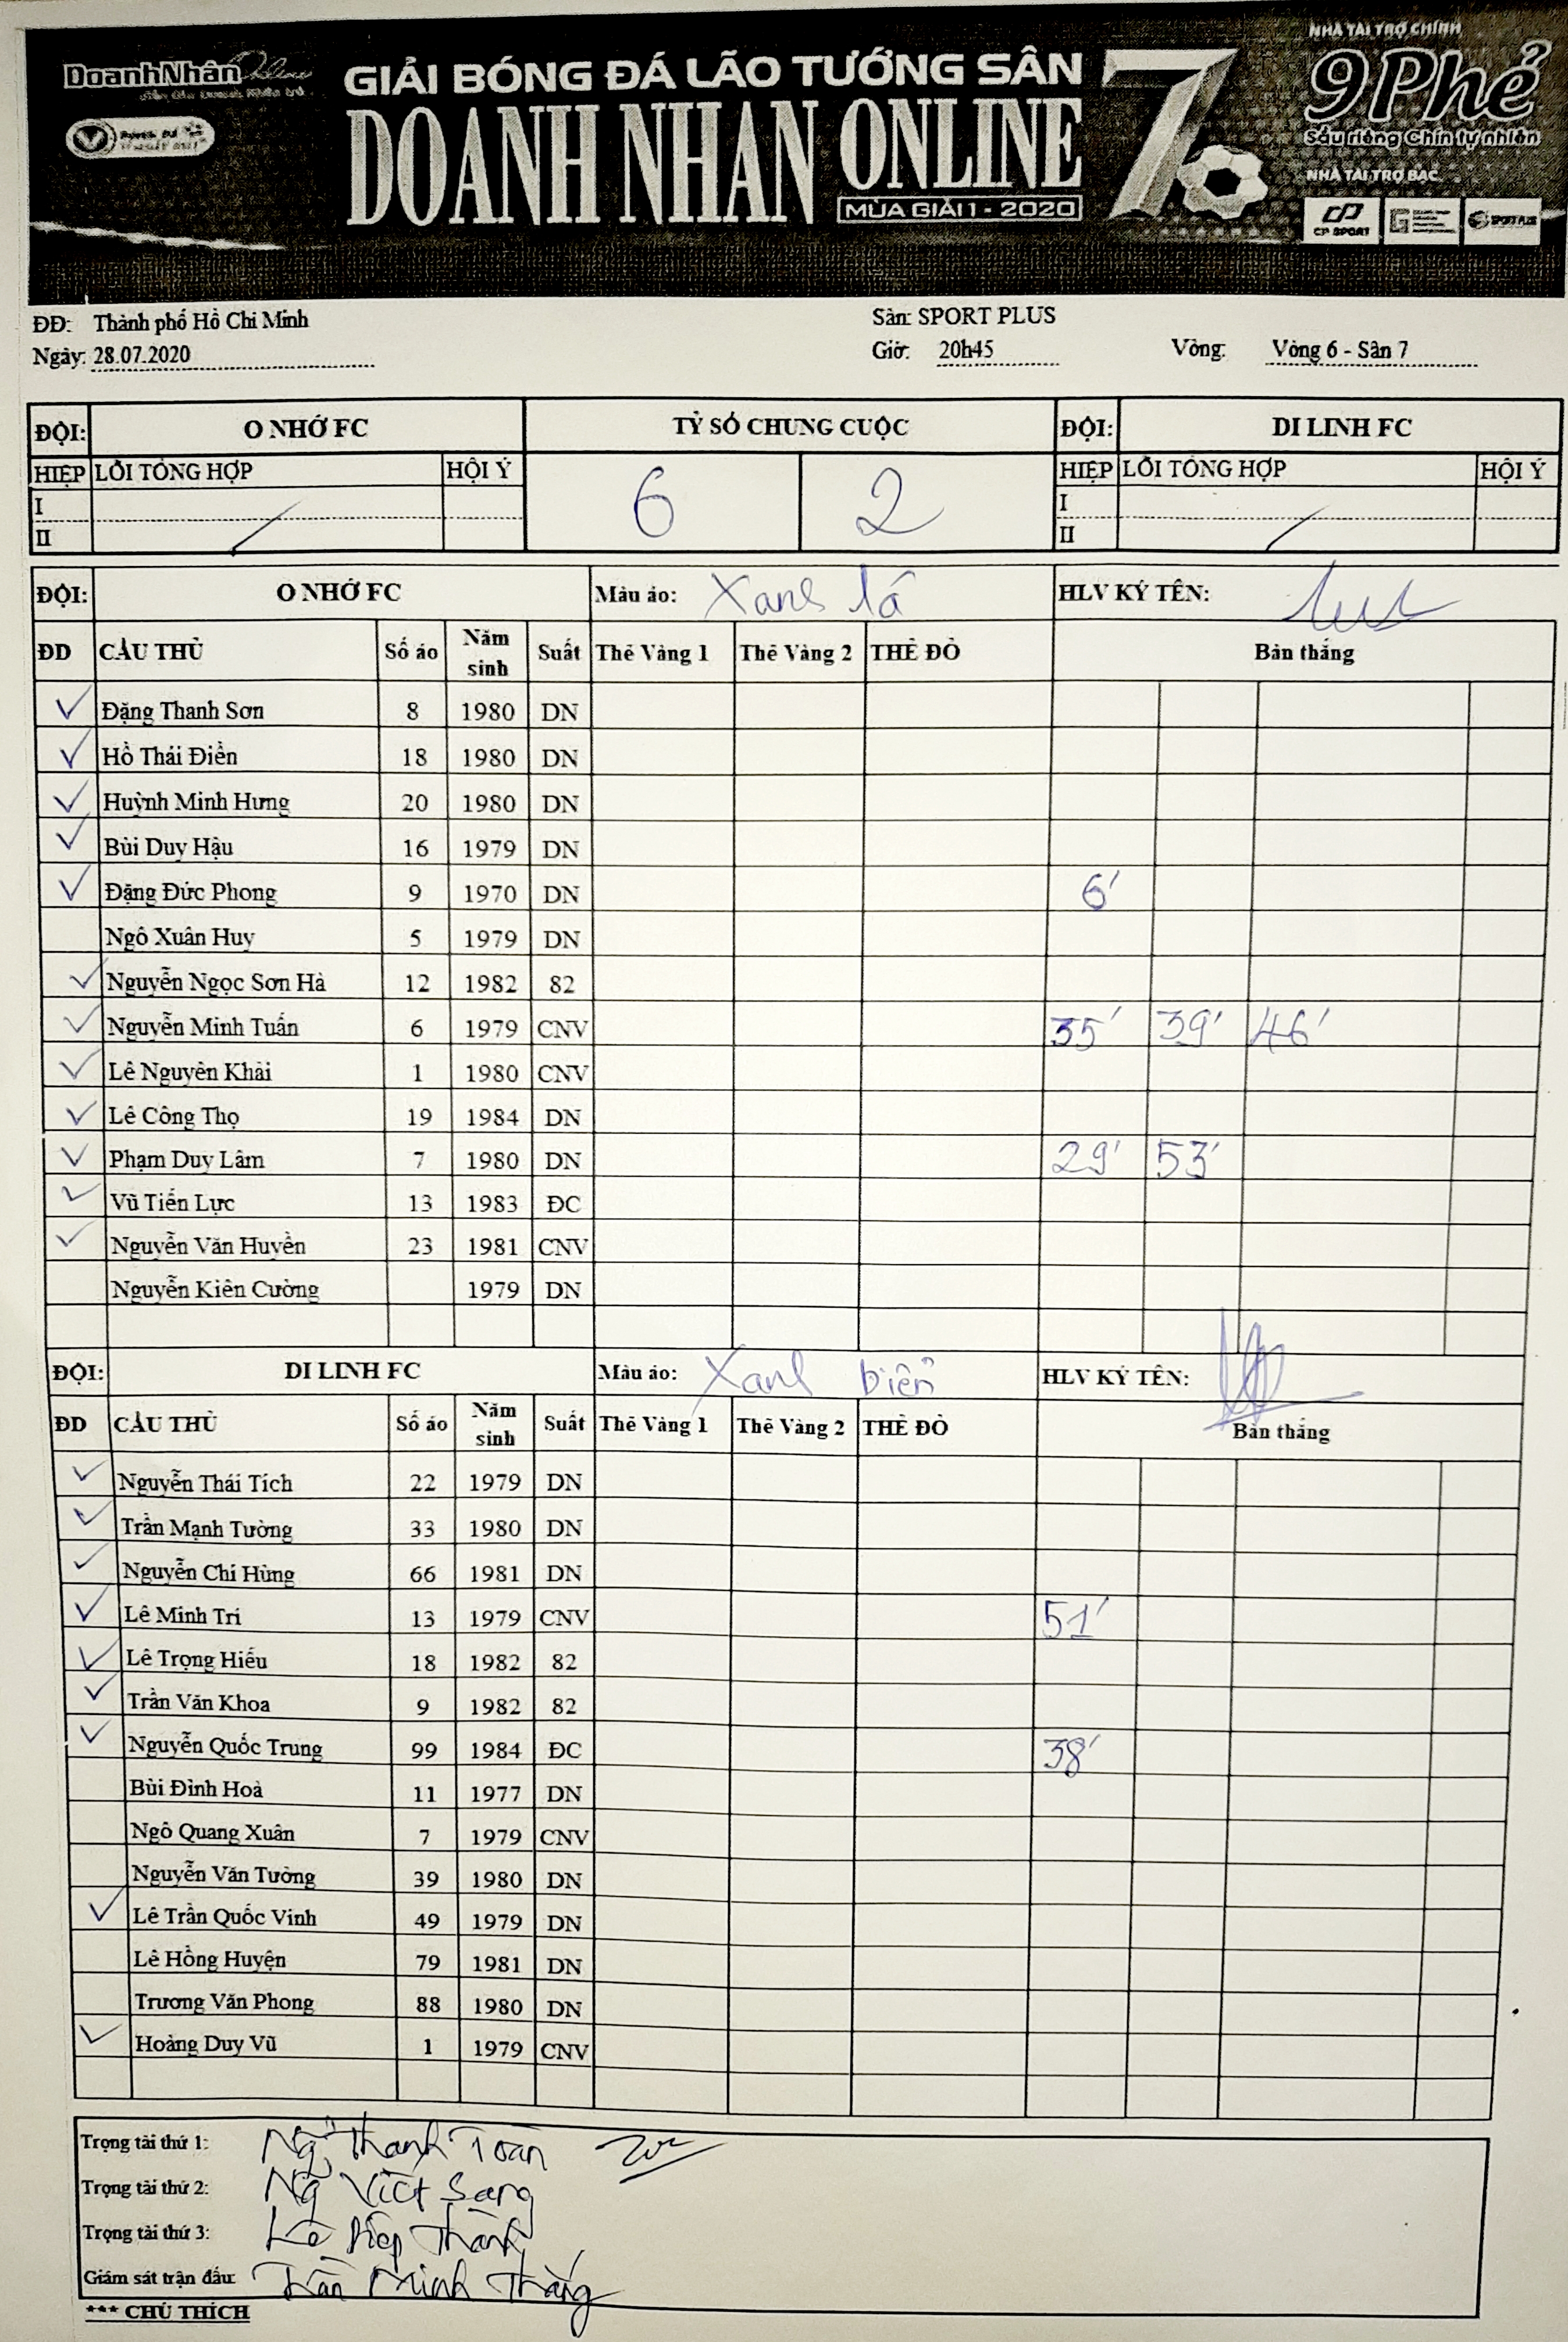 DoanhNhân Online
GIẢI BÓNG ĐÁ LÃO TƯỚNG SÂN 7
DOANH NHÂN ONLINE
MÙA GIẢI 1 - 2020
NHÀ TÀI TRỢ CHÍNH
9 Phẻ
Sầu riêng Chín tự nhiên
NHÀ TÀI TRỢ BẠC
CP SPORT
SPORT PLUS
ĐĐ: Thành phố Hồ Chí Minh
Sân: SPORT PLUS
Ngày: 28.07.2020 Giờ: 20h45 Vòng: Vòng 6 - Sân 7
ĐỘI: O NHỚ FC TỶ SỐ CHUNG CUỘC ĐỘI: DI LINH FC
HIỆP LỖI TỔNG HỢP HỘI Ý 6 2 HIỆP LỖI TỔNG HỢP HỘI Ý
I I
II II
ĐỘI: O NHỚ FC Màu áo: Xanh lá HLV KÝ TÊN:
ĐD CẦU THỦ Số áo Năm sinh Suất Thẻ Vàng 1 Thẻ Vàng 2 THẺ ĐỎ Bàn thắng
✓ Đặng Thanh Sơn 8 1980 DN
✓ Hồ Thái Điền 18 1980 DN
✓ Huỳnh Minh Hưng 20 1980 DN
✓ Bùi Duy Hậu 16 1979 DN
✓ Đặng Đức Phong 9 1970 DN 6'
Ngô Xuân Huy 5 1979 DN
✓ Nguyễn Ngọc Sơn Hà 12 1982 82
✓ Nguyễn Minh Tuấn 6 1979 CNV 35' 39' 46'
✓ Lê Nguyên Khải 1 1980 CNV
✓ Lê Công Thọ 19 1984 DN
✓ Phạm Duy Lâm 7 1980 DN 29' 53'
✓ Vũ Tiến Lực 13 1983 ĐC
✓ Nguyễn Văn Huyền 23 1981 CNV
Nguyễn Kiên Cường 1979 DN
ĐỘI: DI LINH FC Màu áo: Xanh biển HLV KÝ TÊN:
ĐD CẦU THỦ Số áo Năm sinh Suất Thẻ Vàng 1 Thẻ Vàng 2 THẺ ĐỎ Bàn thắng
✓ Nguyễn Thái Tích 22 1979 DN
✓ Trần Mạnh Tường 33 1980 DN
✓ Nguyễn Chí Hùng 66 1981 DN
✓ Lê Minh Trí 13 1979 CNV 51'
✓ Lê Trọng Hiếu 18 1982 82
✓ Trần Văn Khoa 9 1982 82
✓ Nguyễn Quốc Trung 99 1984 ĐC 38'
Bùi Đình Hoà 11 1977 DN
Ngô Quang Xuân 7 1979 CNV
Nguyễn Văn Tường 39 1980 DN
✓ Lê Trần Quốc Vinh 49 1979 DN
Lê Hồng Huyện 79 1981 DN
Trương Văn Phong 88 1980 DN
✓ Hoàng Duy Vũ 1 1979 CNV
Trọng tài thứ 1: Ng Thanh Toàn
Trọng tài thứ 2: Ng Việt Sang
Trọng tài thứ 3: Lê Thành
Giám sát trận đấu: Trần Minh Thắng
*** CHÚ THÍCH